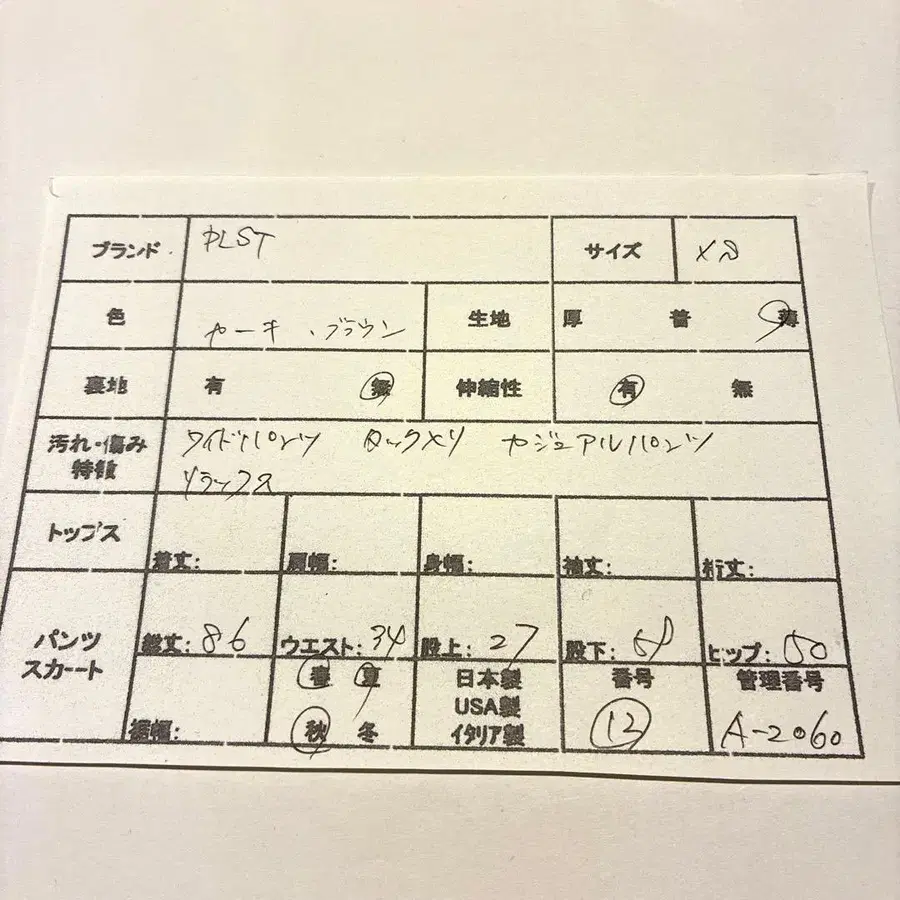 ブランド PLST サイズ XS
色 カーキ・ブラウン 生地 厚 普 薄
裏地 有 無 伸縮性 有 無
汚れ・傷み 特徴 ワイドパンツ タックメリ カジュアルパンツ
リラックス
トップス 着丈: 肩幅: 身幅: 袖丈: 裄丈:
パンツ スカート 総丈: 86 ウエスト: 34 股上: 27 股下: ヒップ: 50
裾幅: 春 夏 秋 冬 日本製 USA製 イタリア製 番号 12 管理番号 A-2060